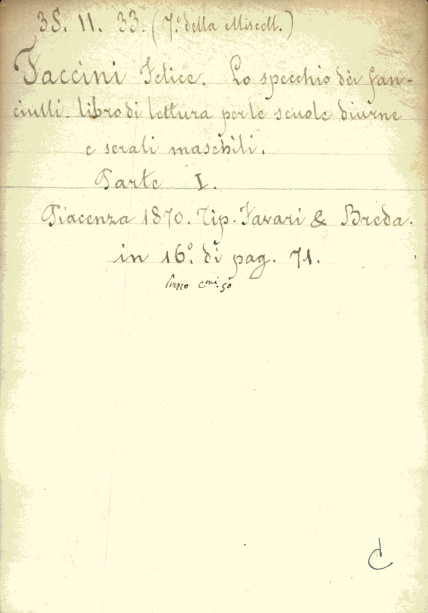 38. 11. 33. (7.º della Miscell.)
Faccini Felice. Lo specchio dei fan-
ciulli. libro di lettura per le scuole diurne
e serali maschili.
Parte I.
Piacenza 1870. Tip. Favari & Breda.
in 16.º di pag. 71.
Prezzo cmi. 50
C